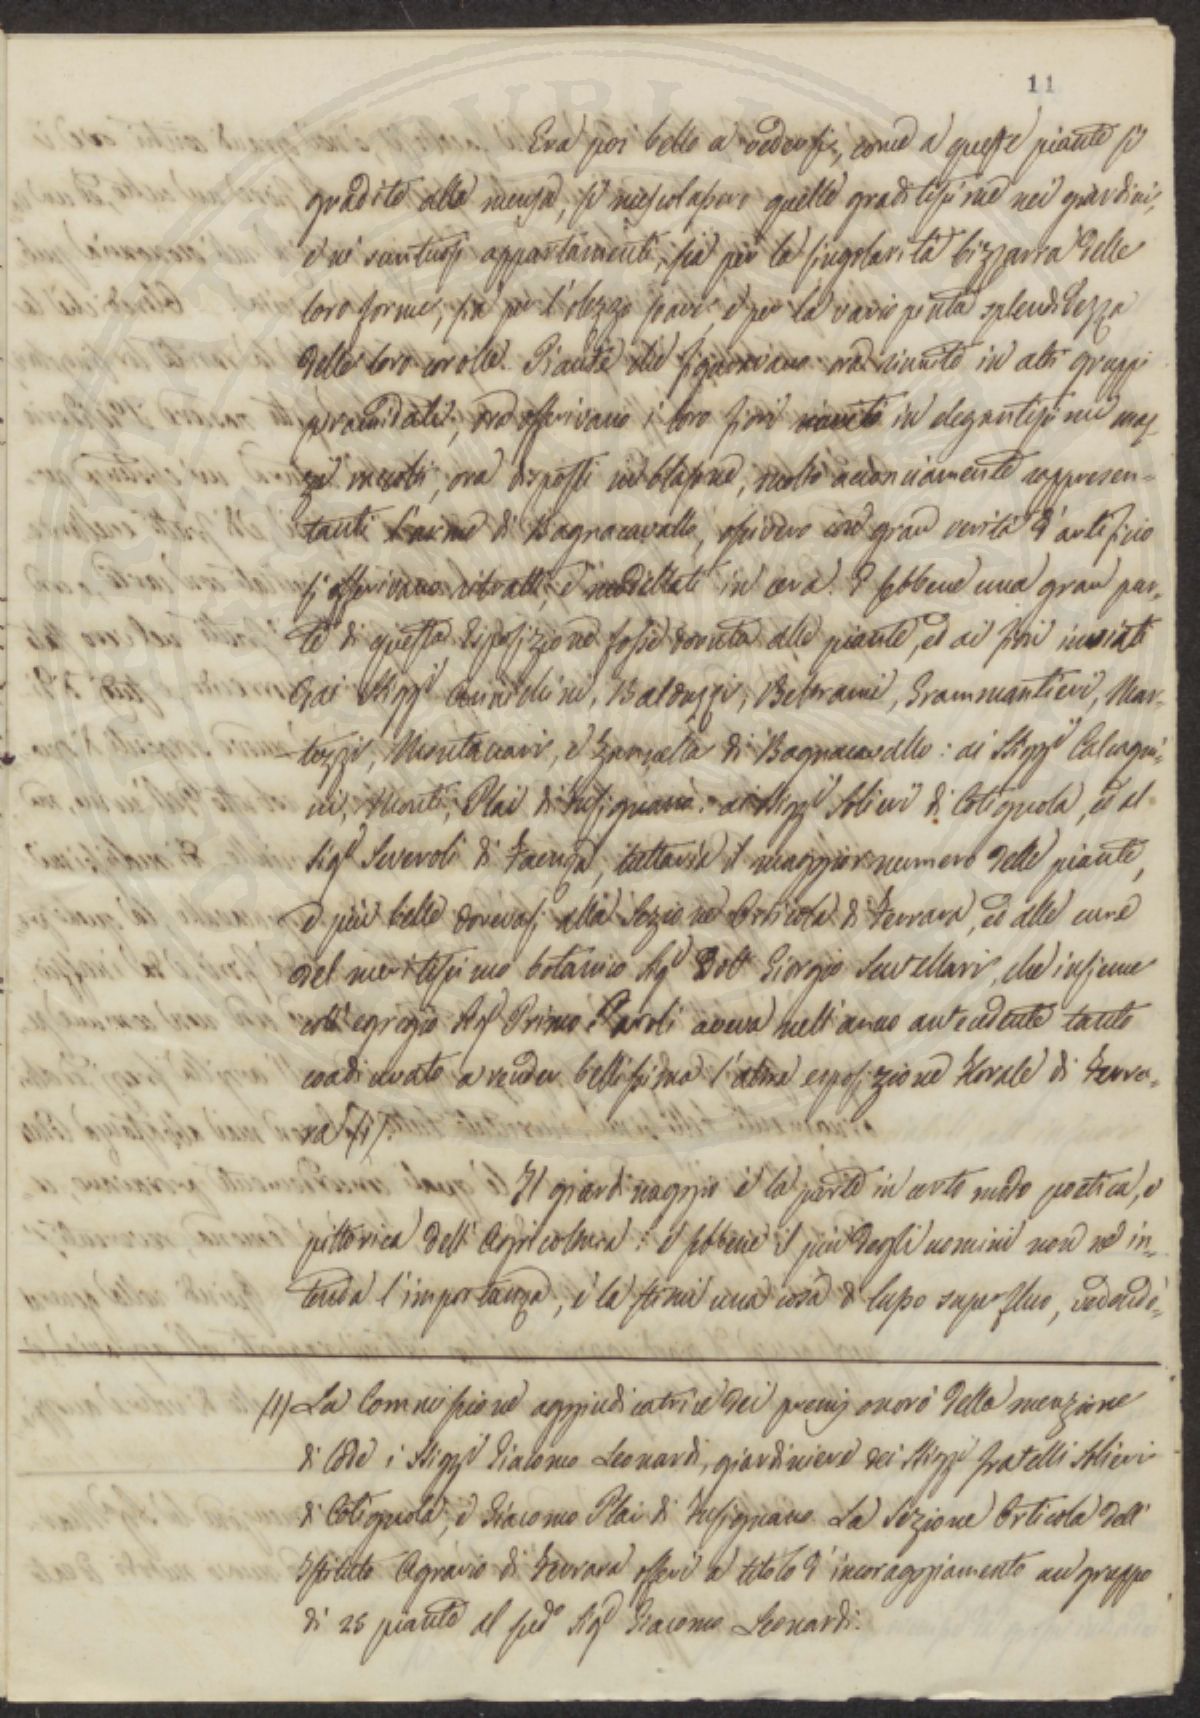 11
Era poi bello a vedersi, come a queste piante sì
gradite alla mensa, si mescolassero quelle graditissime nei giardini,
e ne' suntuosi appartamenti, sia per la singolarità bizzarra delle
loro forme, sia per l'olezzo soave, e per la variopinta splendidezza
delle loro corolle. Piante che figuravano ora riunite in alti gruppi
piramidali, ora offerivano i loro fiori riuniti in elegantissimi maz-
zi raccolti, ora disposti in blasone, molto acconciamente rappresen-
tanti l'arme di Bagnacavallo, ossivero con gran verità d'artificio
si offerivano ritratti, e modellati in cera. E sebbene una gran par-
te di questa disposizione fosse dovuta alle piante, ed ai fiori inviati
dai Sigg.i Balduzzi, Beltrami, Grammantieri, Mar-
tozzi, Montanari, e di Bagnacavallo: ai Sigg.i Calcagni-
ni, Monti, Plai di Fusignano: ai Sigg.i Solieri di Cotignola, ed al
Sig.r Severoli di Faenza, tuttavia il maggior numero delle piante,
e più belle dovevasi alla Sezione Orticola di Ferrara, ed alle cure
del meritissimo botanico Sig.r Dott. Giorgio Scutellari, che insieme
coll'egregio Sig.r Primo Paroli aveva nell'anno antecedente tanto
coadiuvato a render bellissima l'altra esposizione Florale di Ferra-
ra (1).
Il giardinaggio è la parte in certo modo poetica, e
pittorica dell'Agricoltura: e sebbene il più degli uomini non ne in-
tenda l'importanza, e la stimi una cosa di lusso superfluo, vedendo-
(1) La Commissione aggiudicatrice dei premj onorò della menzione
di lode i Sigg.i Giacomo Leonardi, giardiniere dei Sigg.i fratelli Solieri
di Cotignola, e Giacomo Plai di Fusignano. La Sezione Orticola dell'
Istituto Agrario di Ferrara offerì a titolo d'incoraggiamento un gruppo
di 25 piante al sud.o Sig.r Giacomo Leonardi.